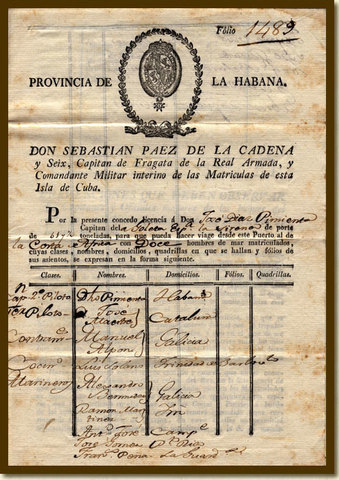 Fólio 1489
PROVINCIA DE LA HABANA.
DON SEBASTIAN PAEZ DE LA CADENA
y Seix, Capitan de Fragata de la Real Armada, y
Comandante Militar interino de las Matriculas de esta
Isla de Cuba.
Por la presente concedo licencia á Don José Diaz Pimienta
Capitan de la Goleta Espª la de porte
de toneladas, para que pueda hacer viage desde este Puerto al de
la Costa Africa con Doce hombres de mar matriculados,
cuyas clases, nombres, domicilios, quadrillas en que se hallan y fólios
de sus asientos, se expresan en la forma siguiente.
Clases. Nombres. Domicilios. Fólios. Quadrillas.
Cap.n 2.º Piloto Dho Pimienta Habana
Piloto José
Cataluña
Contram.e Manuel Galicia
Cocin.º Luis Trinidad
Marineros Alexandro Galicia
Ramon Mar
tinez
Ant.º José
José Gomez
Fran.co Peña La